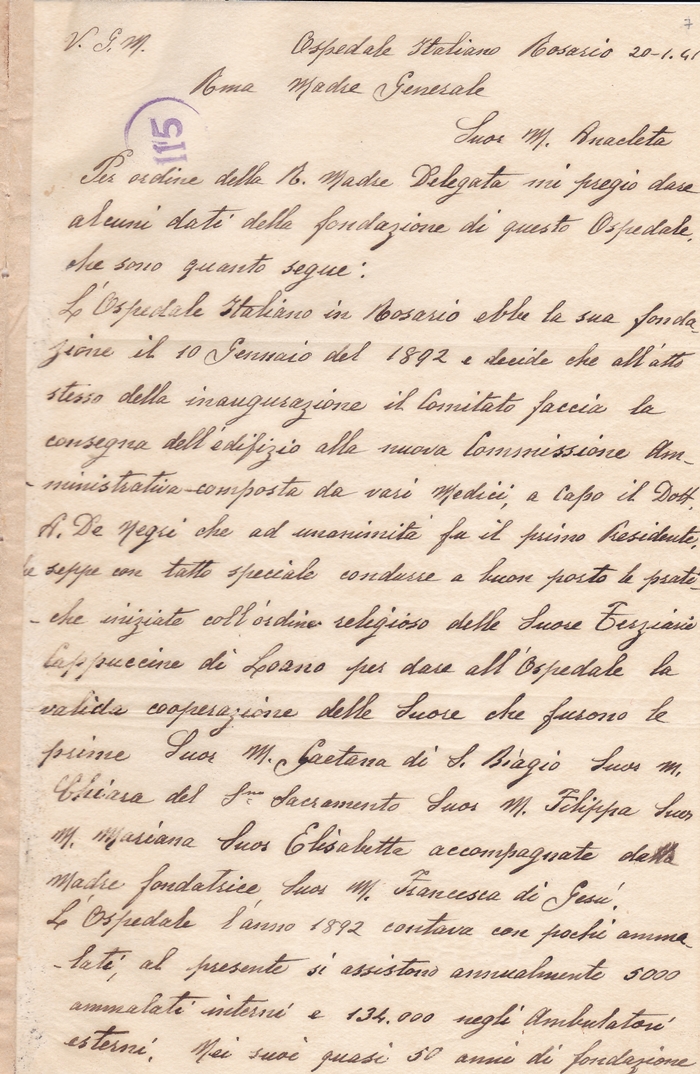 7
V. G. M. Ospedale Italiano Rosario 20-1.41
Rma Madre Generale
115
Suor M. Anacleta
Per ordine della R. Madre Delegata mi pregio dare
alcuni dati della fondazione di questo Ospedale,
che sono quanto segue:
L'Ospedale Italiano in Rosario ebbe la sua fonda-
zione il 10 Gennaio del 1892 e decide che all'atto
stesso della inaugurazione il Comitato faccia la
consegna dell'edifizio alla nuova Commissione Am-
-ministrativa-composta da vari Medici, a capo il Dott.
A. De Negri che ad unanimità fu il primo Presidente,
seppe con tatto speciale condurre a buon porto le prati-
-che iniziate coll'ordine religioso delle Suore Terziarie
Cappuccine di Loano per dare all'Ospedale la
valida cooperazione delle Suore che furono le
prime Suor M. Gaetana di S. Biagio Suor M.
Chiara del Smo Sacramento Suor M. Filippa Suor
M. Mariana Suor Elisabetta accompagnate da
Madre fondatrice Suor M. Francesca di Gesù.
L'Ospedale l'anno 1892 contava con pochi amma-
-lati, al presente si assistono annualmente 5000
ammalati interni e 134.000 negli Ambulatori
esterni. Nei suoi quasi 50 anni di fondazione